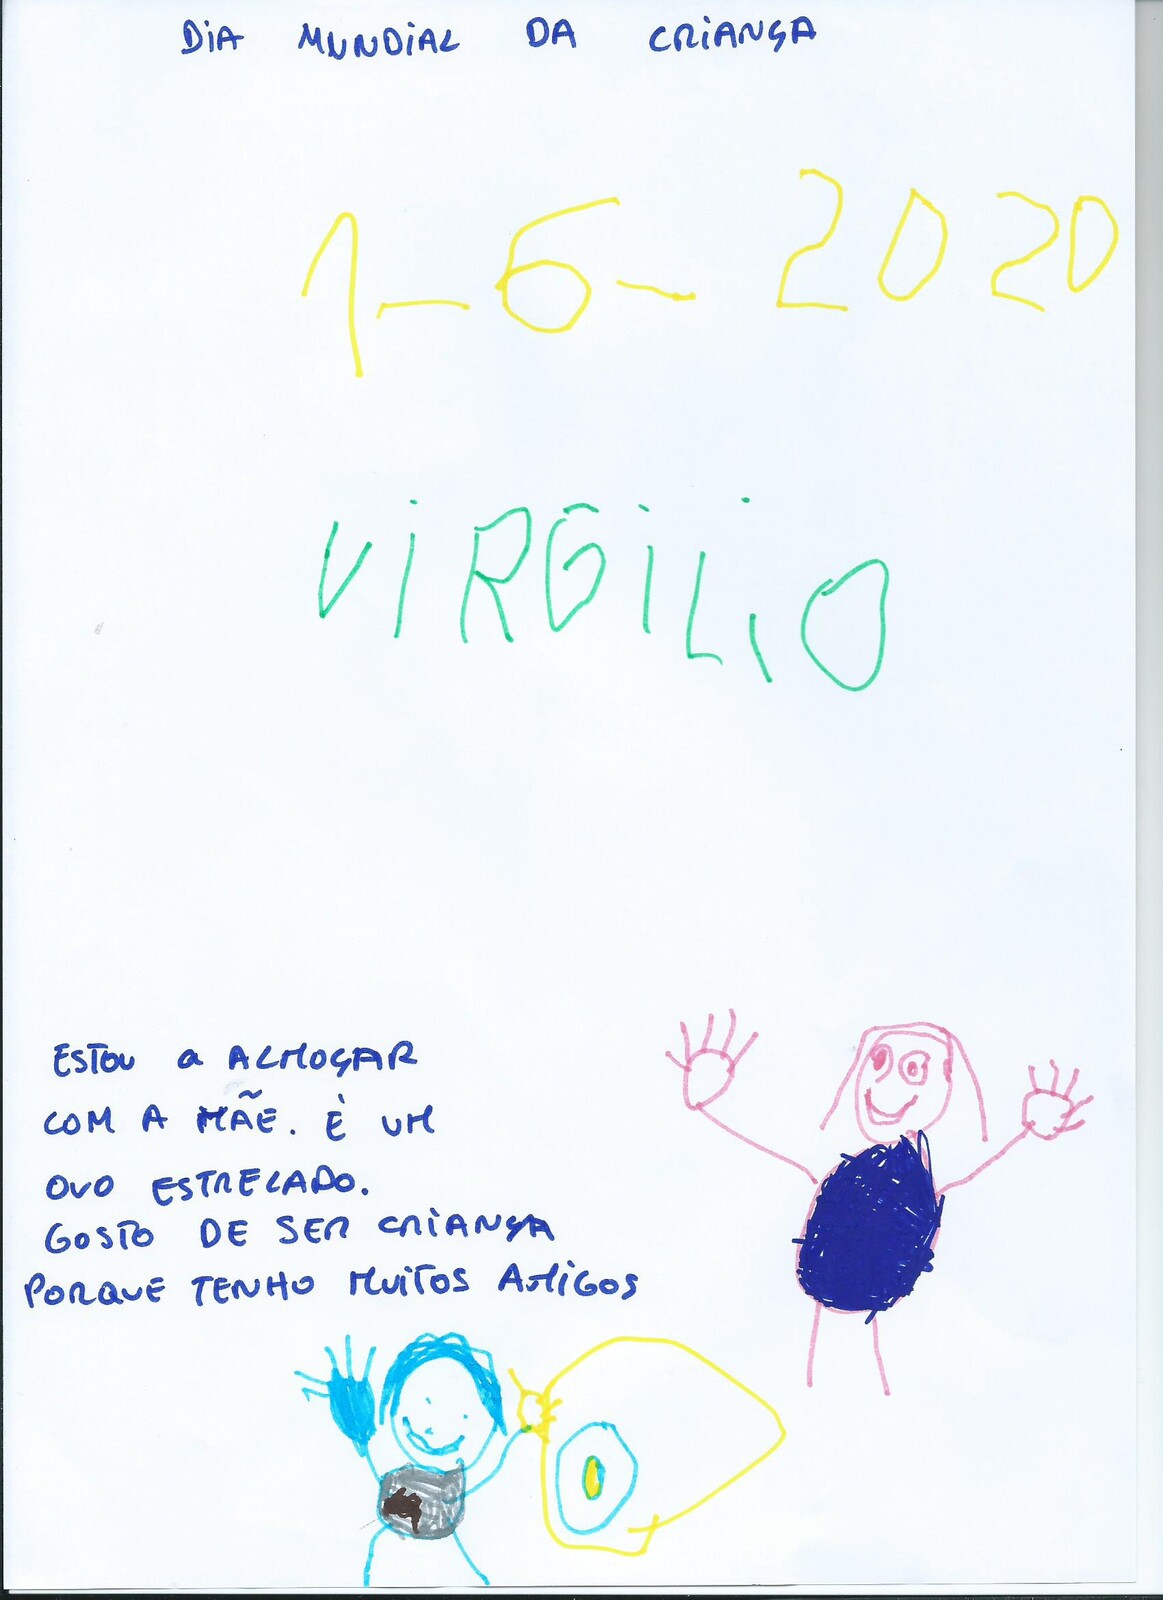 DIA MUNDIAL DA CRIANÇA
1-6-2020
VIRGILIO
ESTOU A ALMOÇAR
COM A MÃE. É UM
OVO ESTRELADO.
GOSTO DE SER CRIANÇA
PORQUE TENHO MUITOS AMIGOS